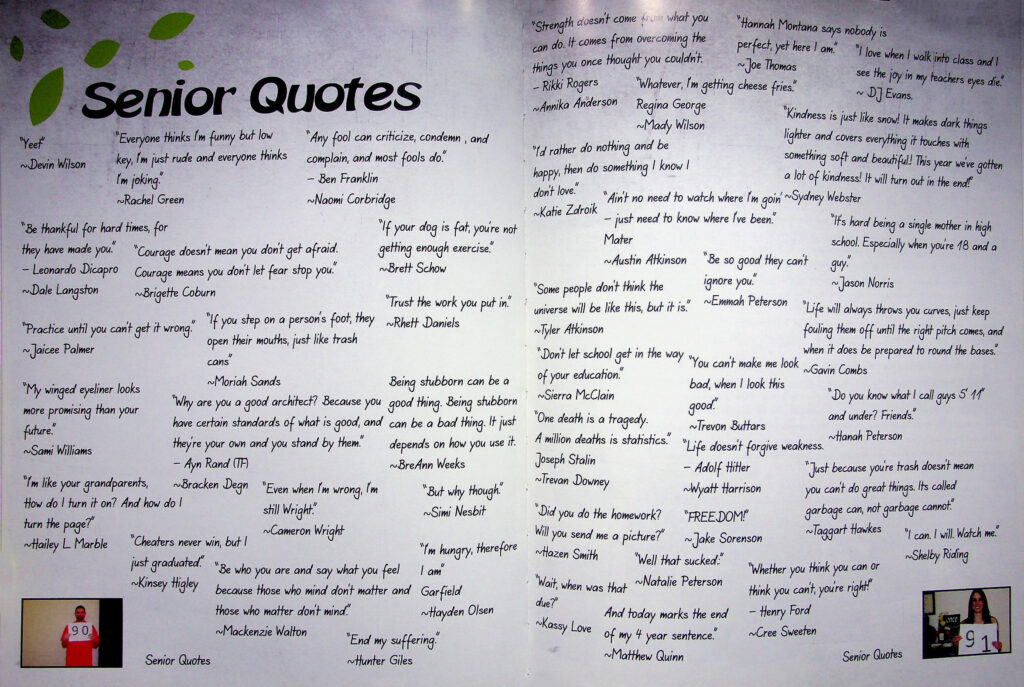 Senior Quotes
"Yeef"
~Devin Wilson
"Everyone thinks I'm funny but low
key, I'm just rude and everyone thinks
I'm joking."
~Rachel Green
"Any fool can criticize, condemn , and
complain, and most fools do."
– Ben Franklin
~Naomi Corbridge
"Be thankful for hard times, for
they have made you."
– Leonardo Dicapro
~Dale Langston
"Courage doesn't mean you don't get afraid.
Courage means you don't let fear stop you."
~Brigette Coburn
"If your dog is fat, you're not
getting enough exercise."
~Brett Schow
"Trust the work you put in."
~Rhett Daniels
"Practice until you can't get it wrong."
~Jaicee Palmer
"If you step on a person's foot, they
open their mouths, just like trash
cans"
~Moriah Sands
"My winged eyeliner looks
more promising than your
future."
~Sami Williams
"Why are you a good architect? Because you
have certain standards of what is good, and
they're your own and you stand by them."
– Ayn Rand (TF)
~Bracken Degn
Being stubborn can be a
good thing. Being stubborn
can be a bad thing. It just
depends on how you use it.
~BreAnn Weeks
"I'm like your grandparents,
How do I turn it on? And how do I
turn the page?"
~Hailey L. Marble
"Even when I'm wrong, I'm
still Wright."
~Cameron Wright
"But why though."
~Simi Nesbit
"Cheaters never win, but I
just graduated."
~Kinsey Higley
"I'm hungry, therefore
I am"
Garfield
~Hayden Olsen
"Be who you are and say what you feel
because those who mind don't matter and
those who matter don't mind."
~Mackenzie Walton
"End my suffering."
~Hunter Giles
90
Senior Quotes
"Strength doesn't come from what you
can do. It comes from overcoming the
things you once thought you couldn't.
– Rikki Rogers
~Annika Anderson
"Hannah Montana says nobody is
perfect, yet here I am."
~Joe Thomas
"I love when I walk into class and I
see the joy in my teachers eyes die."
~ DJ Evans.
"Whatever, I'm getting cheese fries."
Regina George
~Mady Wilson
"Kindness is just like snow! It makes dark things
lighter and covers everything it touches with
something soft and beautiful! This year we've gotten
a lot of kindness! It will turn out in the end!"
~Sydney Webster
"I'd rather do nothing and be
happy, then do something I know I
don't love."
~Katie Zdroik
"Ain't no need to watch where I'm goin'
– just need to know where I've been."
Mater
~Austin Atkinson
"It's hard being a single mother in high
school. Especially when you're 18 and a
guy."
~Jason Norris
"Be so good they can't
ignore you."
~Emmah Peterson
"Some people don't think the
universe will be like this, but it is."
~Tyler Atkinson
"Life will always throws you curves, just keep
fouling them off until the right pitch comes, and
when it does be prepared to round the bases."
~Gavin Combs
"Don't let school get in the way
of your education."
~Sierra McClain
"You can't make me look
bad, when I look this
good."
~Trevon Buttars
"Do you know what I call guys 5' 11"
and under? Friends."
~Hanah Peterson
"One death is a tragedy.
A million deaths is statistics."
Joseph Stalin
~Trevan Downey
"Life doesn't forgive weakness.
– Adolf Hitler
~Wyatt Harrison
"Just because you're trash doesn't mean
you can't do great things. Its called
garbage can, not garbage cannot."
~Taggart Hawkes
"Did you do the homework?
Will you send me a picture?"
~Hazen Smith
"FREEDOM!"
~Jake Sorenson
"I can. I will. Watch me."
~Shelby Riding
"Well that sucked."
~Natalie Peterson
"Wait, when was that
due?"
~Kassy Love
"Whether you think you can or
think you can't, you're right!"
– Henry Ford
~Cree Sweeten
And today marks the end
of my 4 year sentence."
~Matthew Quinn
Senior Quotes
91